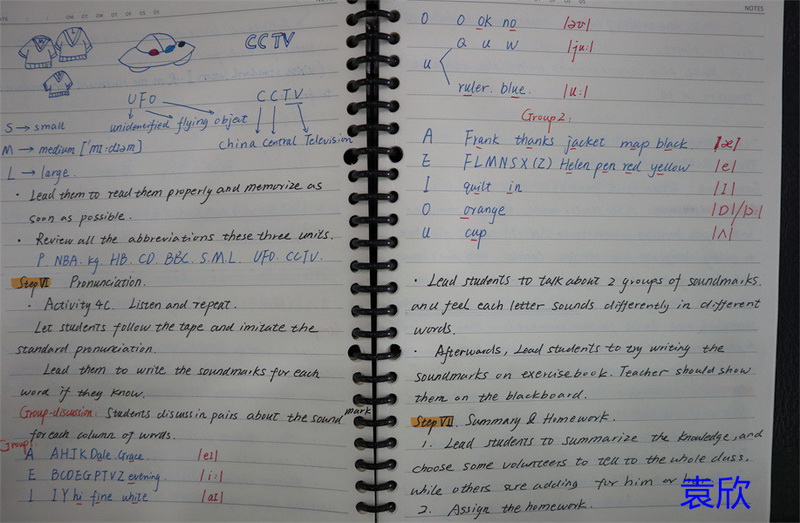 NOTES
CCTV
UFO
CCTV
S → small
unidentified flying object
China Central Television
M → medium ['mi:diəm]
L → large.
· Lead them to read them properly and memorize as
soon as possible.
· Review all the abbreviations these three units.
P NBA. kg. HB. CD. BBC. S.M.L. UFO. CCTV.
Step VI Pronunciation.
· Activity 4C. Listen and repeat.
Let students follow the tape and imitate the
standard pronunciation.
Lead them to write the soundmarks for each
word if they know.
Group-discussion: Students discuss in pairs about the soundmark
for each column of words.
Group1
A AHJK Dale Grace /eɪ/
E BCDEGPTVZ evening /i:/
I I Y hi fine white /aɪ/
NOTES
O O ok no /əʊ/
U Q U W /ju:/
ruler. blue. /u:/
Group 2:
A Frank thanks jacket map black /æ/
E FLMNSX(Z) Helen pen red yellow /e/
I quilt in /I/
O orange /ɒ/ /ɔ:/
U cup /ʌ/
· Lead students to talk about 2 groups of soundmarks.
and feel each letter sounds differently in different
words.
· Afterwards, Lead students to try writing the
soundmarks on exercisebook. Teacher should show
them on the blackboard.
Step VII Summary & Homework.
1. Lead students to summarize the knowledge, and
choose some volunteers to tell to the whole class.
while others are adding for him or
2. Assign the homework.
袁欣